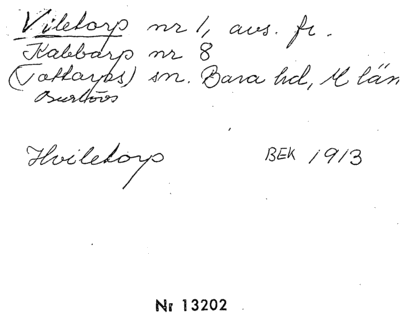 Viletorp nr 1, avs. fr.
Kabbarp nr 8
(Tottarps) sn. Bara hd, M län
Burlövs
Hviletorp BEK 1913
Nr 13202